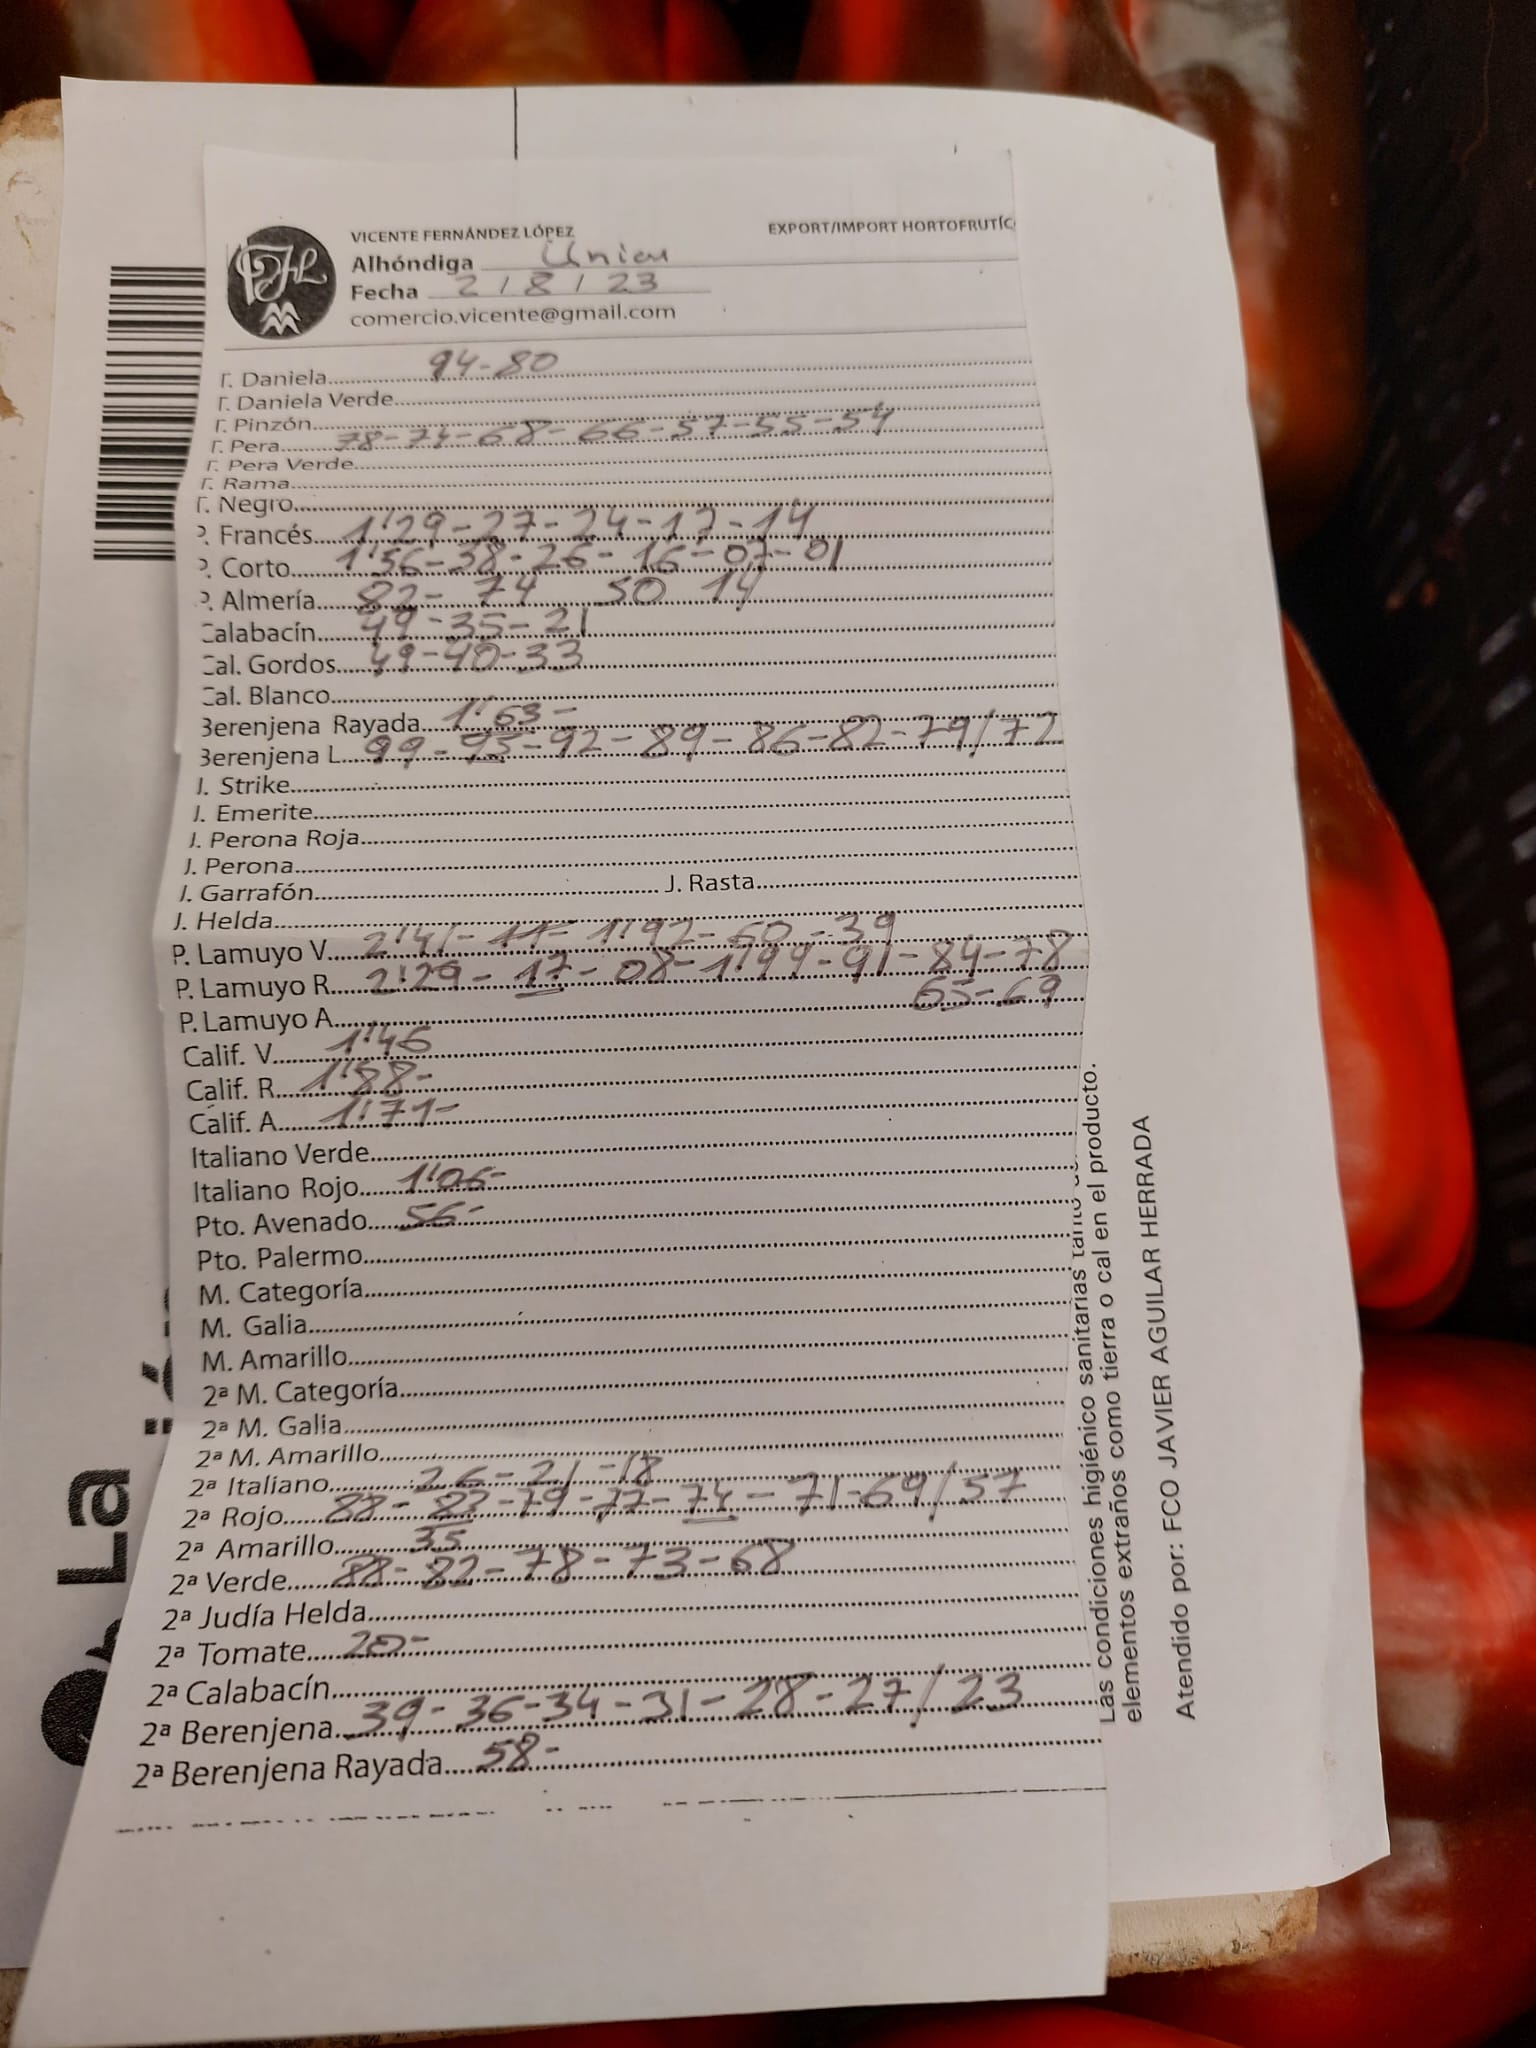 VICENTE FERNÁNDEZ LÓPEZ EXPORT/IMPORT HORTOFRUTÍC
Alhóndiga Union
Fecha 2/8/23
comercio.vicente@gmail.com
T. Daniela 94-80
T. Daniela Verde
T. Pinzón
T. Pera 78-74-68-66-57-55-54
T. Pera Verde
T. Rama
T. Negro
P. Francés 1'29-27-24-17-14
P. Corto 1'56-38-26-16-07-01
P. Almería 82-74 50 14
Calabacín 49-35-21
Cal. Gordos 49-40-33
Cal. Blanco
Berenjena Rayada 1'63-
Berenjena L 99-95-92-89-86-82-79/72
J. Strike
J. Emerite
J. Perona Roja
J. Perona
J. Garrafón J. Rasta
J. Helda
P. Lamuyo V 2'41-11-1'92-60-39
P. Lamuyo R 2'29-17-08-1'99-91-84-78
65-69
P. Lamuyo A
Calif. V 1'46
Calif. R 1'88-
Calif. A 1'71-
Italiano Verde
Italiano Rojo 1'06-
Pto. Avenado 56-
Pto. Palermo
M. Categoría
M. Galia
M. Amarillo
2ª M. Categoría
2ª M. Galia
2ª M. Amarillo
2ª Italiano 26-21-18
2ª Rojo 88-83-79-77-74-71-69/57
2ª Amarillo 35
2ª Verde 88-82-78-73-68
2ª Judía Helda
2ª Tomate 20-
2ª Calabacín
2ª Berenjena 39-36-34-31-28-27/23
2ª Berenjena Rayada 58-
La
Las condiciones higiénico sanitarias tanto
elementos extraños como tierra o cal en el producto.
Atendido por: FCO JAVIER AGUILAR HERRADA